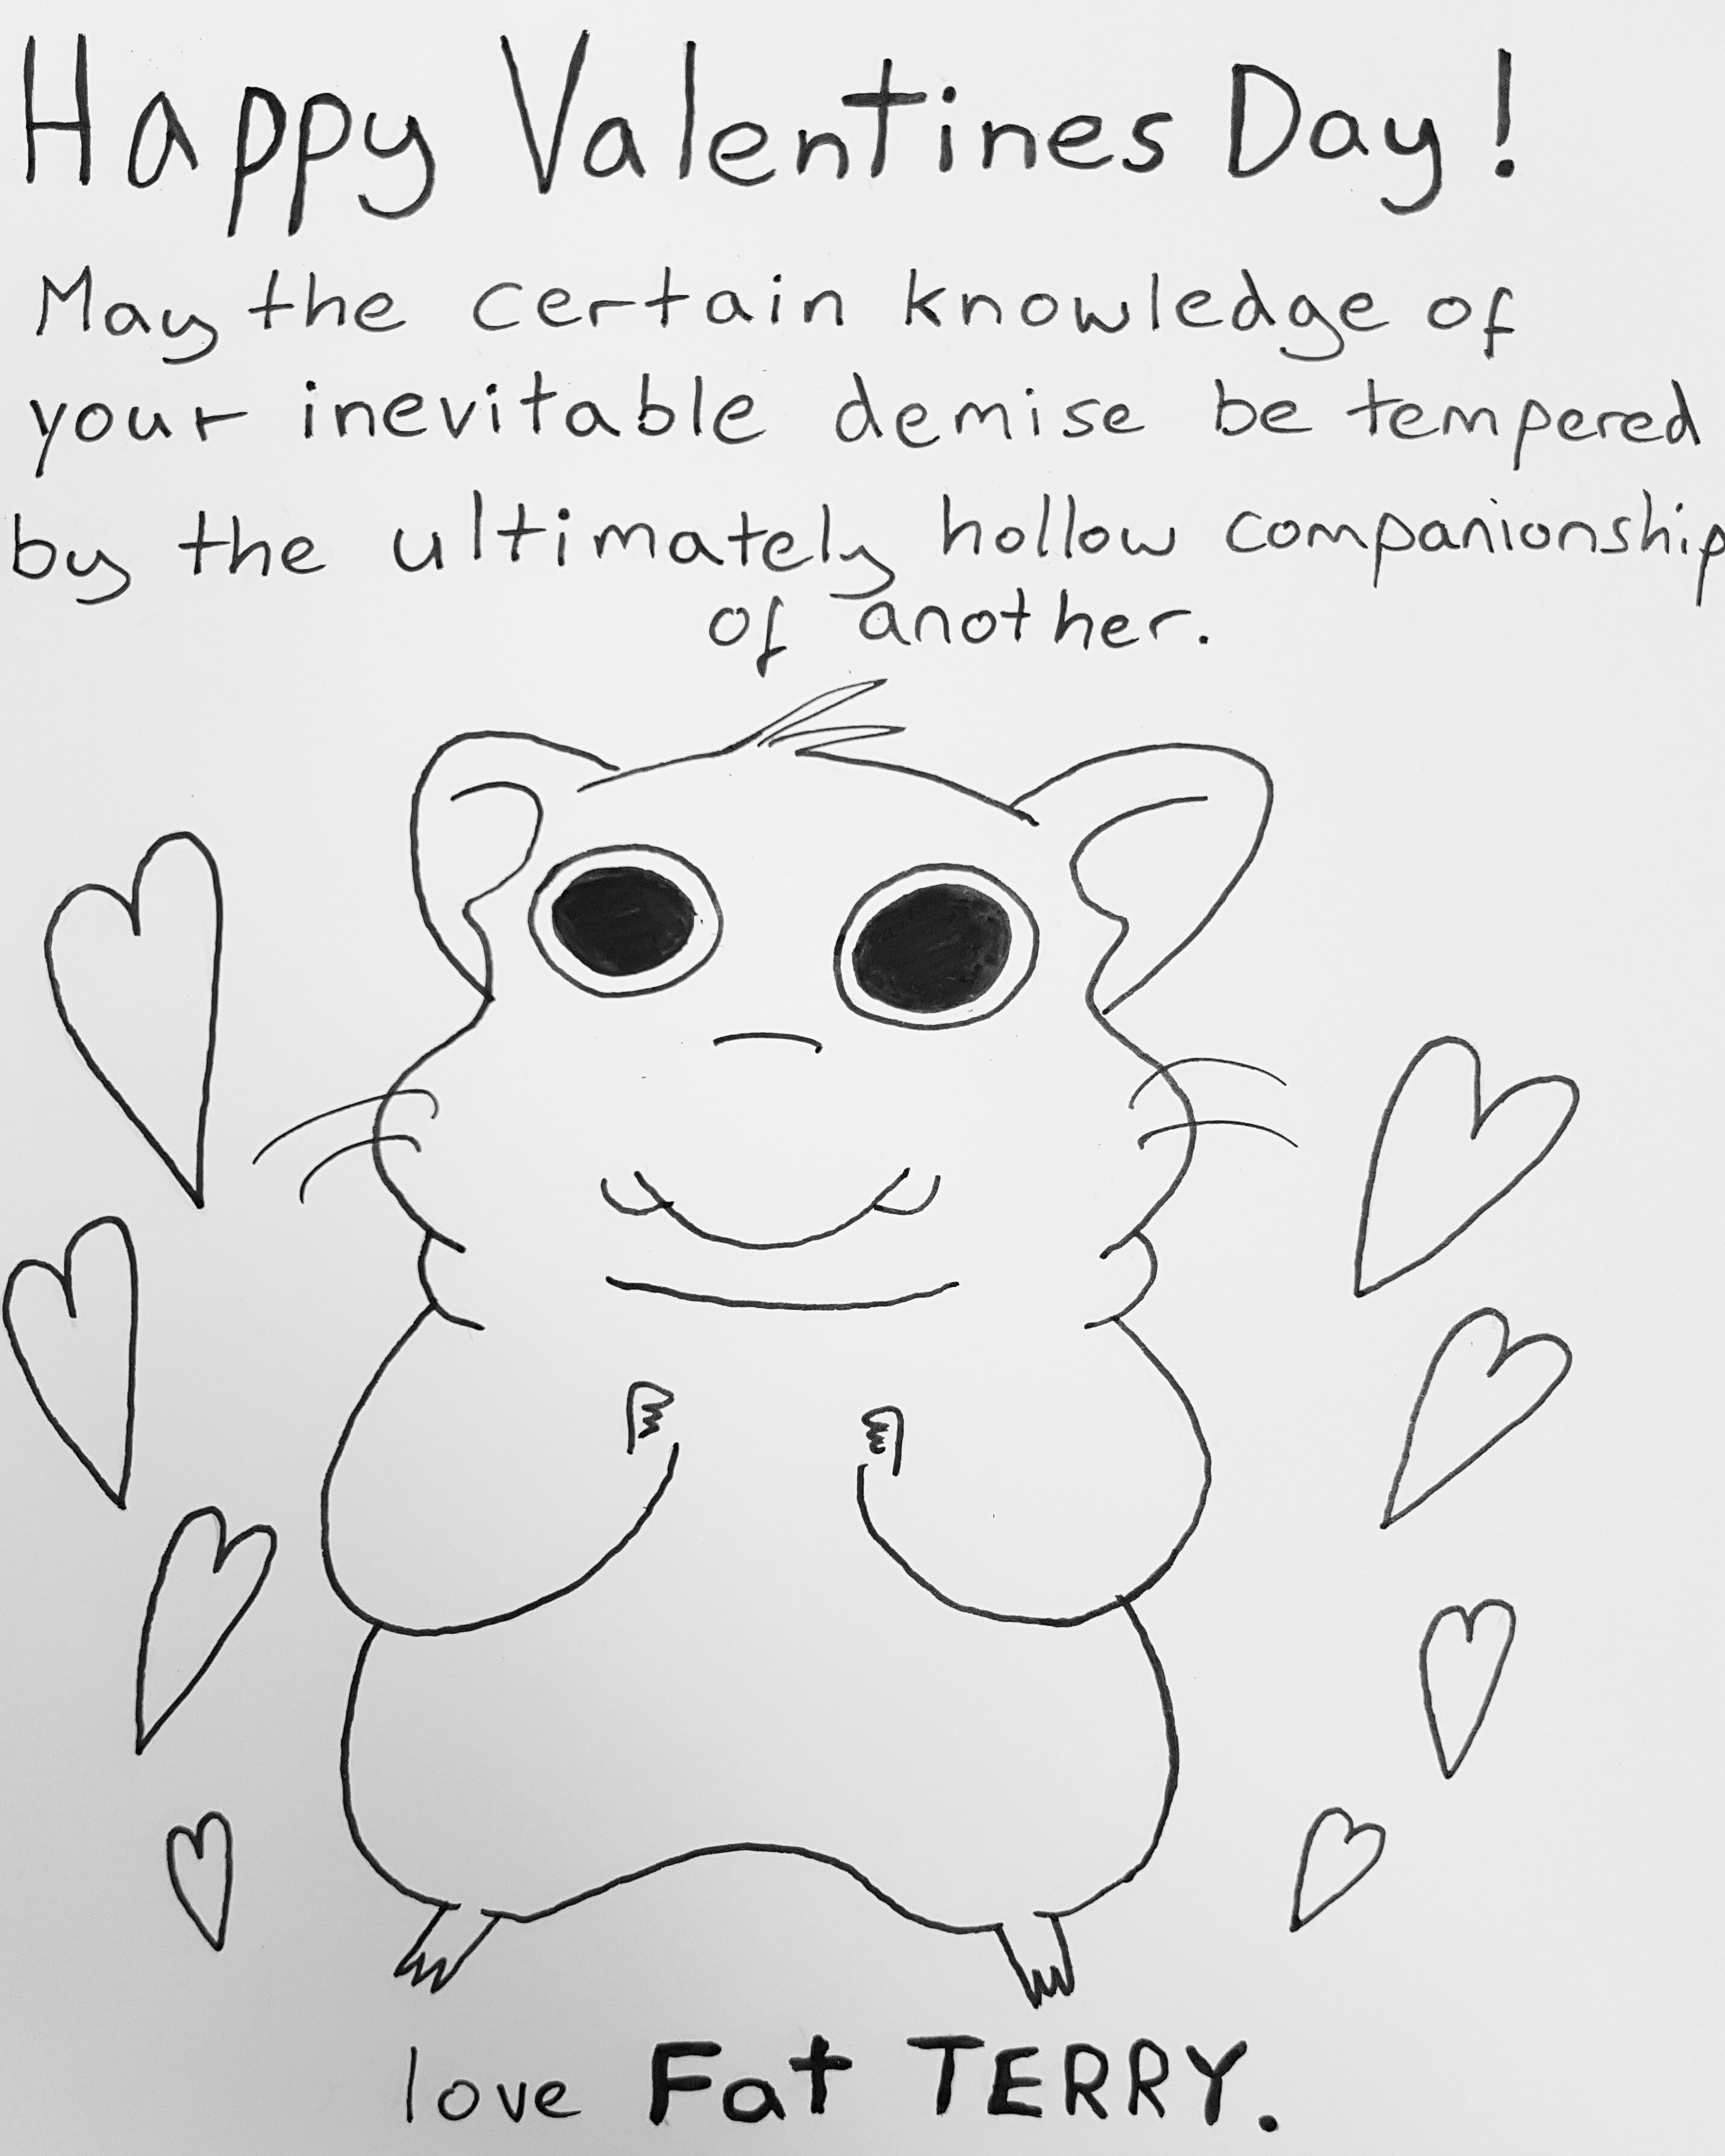 Happy Valentines Day!
May the certain knowledge of
your inevitable demise be tempered
by the ultimately hollow companionship
of another.
love Fat TERRY.